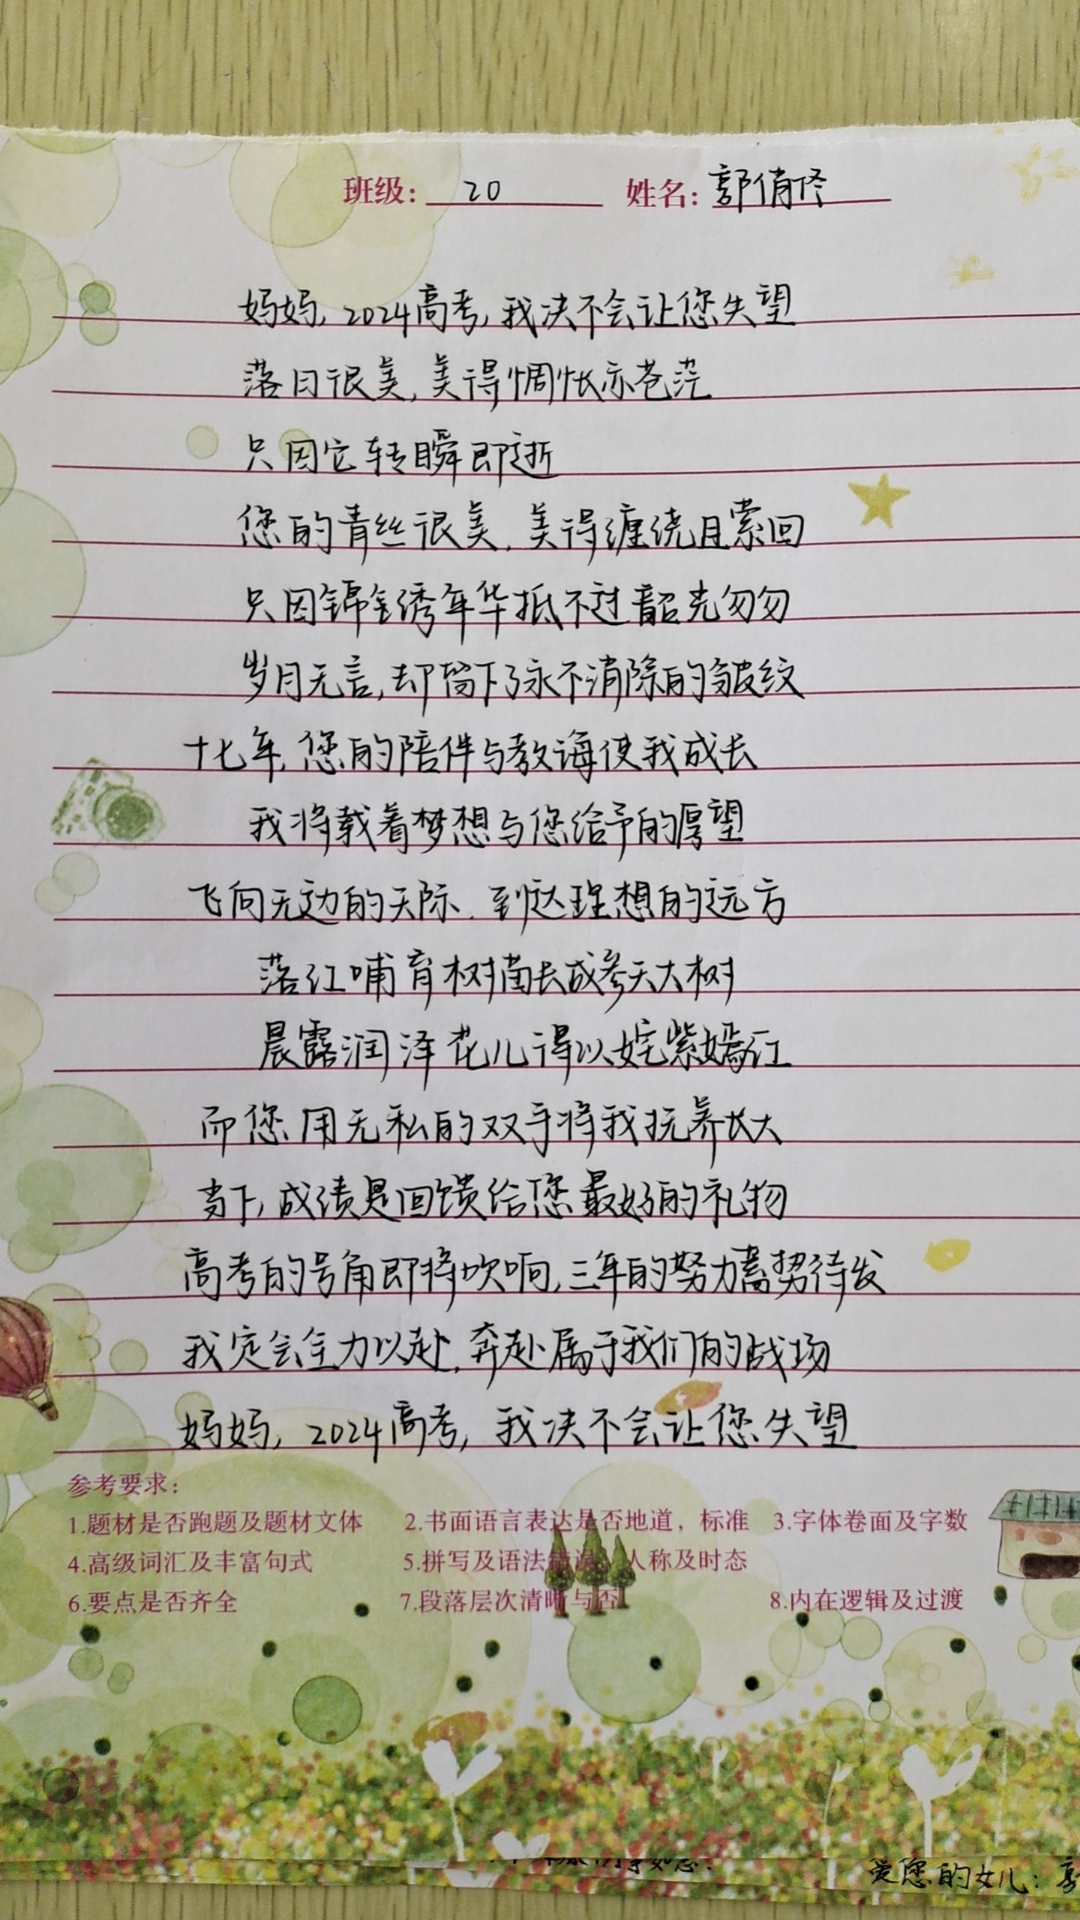 班级: 20 姓名: 郭俏佟
妈妈, 2024高考, 我决不会让您失望
落日很美, 美得惆怅亦苍茫
只因它转瞬即逝
您的青丝很美, 美得缠绕且萦回
只因锦绣年华抵不过韶光匆匆
岁月无言, 却留下了永不消除的皱纹
十七年, 您的陪伴与教诲使我成长
我将载着梦想与您给予的厚望
飞向无边的天际, 到达理想的远方
落红哺育树苗长成参天大树
晨露润泽花儿得以姹紫嫣红
而您用无私的双手将我抚养长大
当下, 成绩是回馈给您最好的礼物
高考的号角即将吹响, 三年的努力蓄势待发
我定会全力以赴, 奔赴属于我们的战场
妈妈, 2024高考, 我决不会让您失望
参考要求:
1.题材是否跑题及题材文体 2.书面语言表达是否地道, 标准 3.字体卷面及字数
4.高级词汇及丰富句式 5.拼写及语法错误, 人称及时态
6.要点是否齐全 7.段落层次清晰与否 8.内在逻辑及过渡
爱您的女儿: 郭